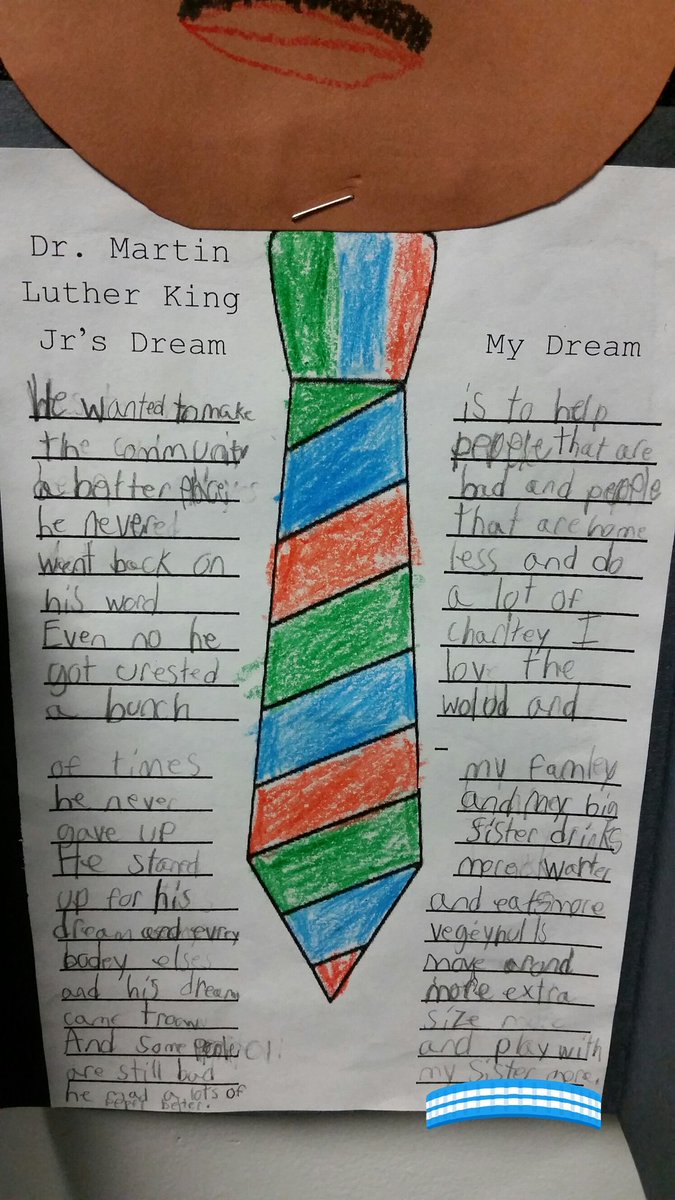 Dr. Martin
Luther King
Jr's Dream
He wanted to make
the community
a better place
he never
went back on
his word
Even no he
got urested
a bunch
of times
he never
gave up
He stared
up for his
dream and evrey
bodey elses
and his dream
came troow
And some people
are still bad
he mad a lots of
peper better.
My Dream
is to help
people that are
bad and people
that are home
less and do
a lot of
charitey I
love the
wolud and
my famley
and my big
sister drinks
more warter
and eats more
vegeybulls
move arond
more extra
size
and play with
my sister more.